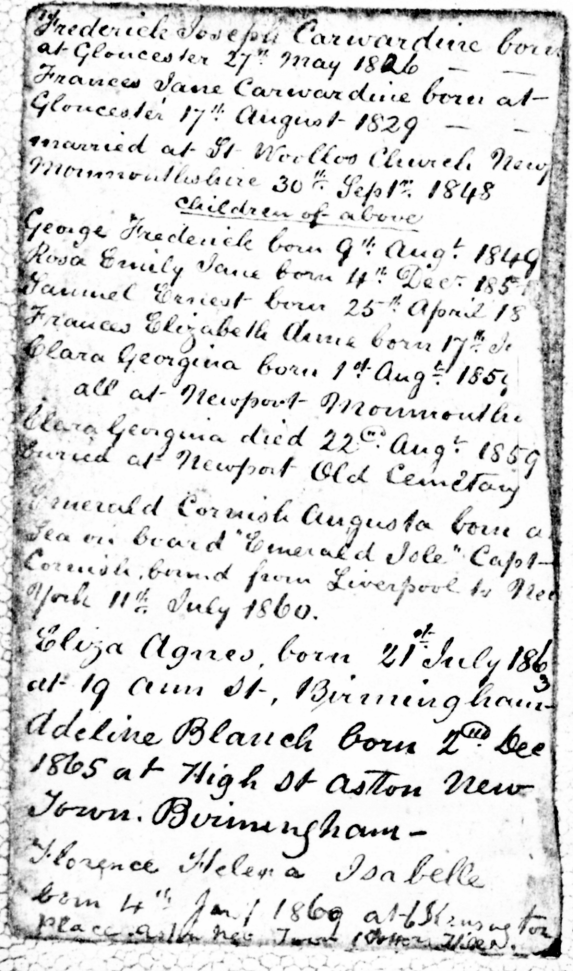 Frederick Joseph Carwardine born
at Gloucester 27th May 1826 — —
Frances Jane Carwardine born at
Gloucester 17th August 1829 — —
married at St Woollos Church New
Monmouthshire 30th Septr 1848
Children of above
George Frederick born 9th Augt 1849
Rosa Emily Jane born 4th Decr 185
Samuel Ernest born 25th April 18
Frances Elizabeth Anne born 17th
Clara Georgina born 1st Augt 185
all at Newport Monmouth
Clara Georgina died 22d Augt 1859
buried at Newport Old Cemetary
Emerald Cornish Augusta born a
Sea on board "Emerald Isle" Capt
Cornish, bound from Liverpool to New
York 11th July 1860.
Eliza Agnes, born 21st July 1863
at 19 Ann St, Birmingham
Adeline Blanch born 2nd Dec
1865 at High St Aston New
Town. Birmingham —
Florence Helena Isabelle
born 4th Jany 1869 at 6 Kensington
Place Aston New Town